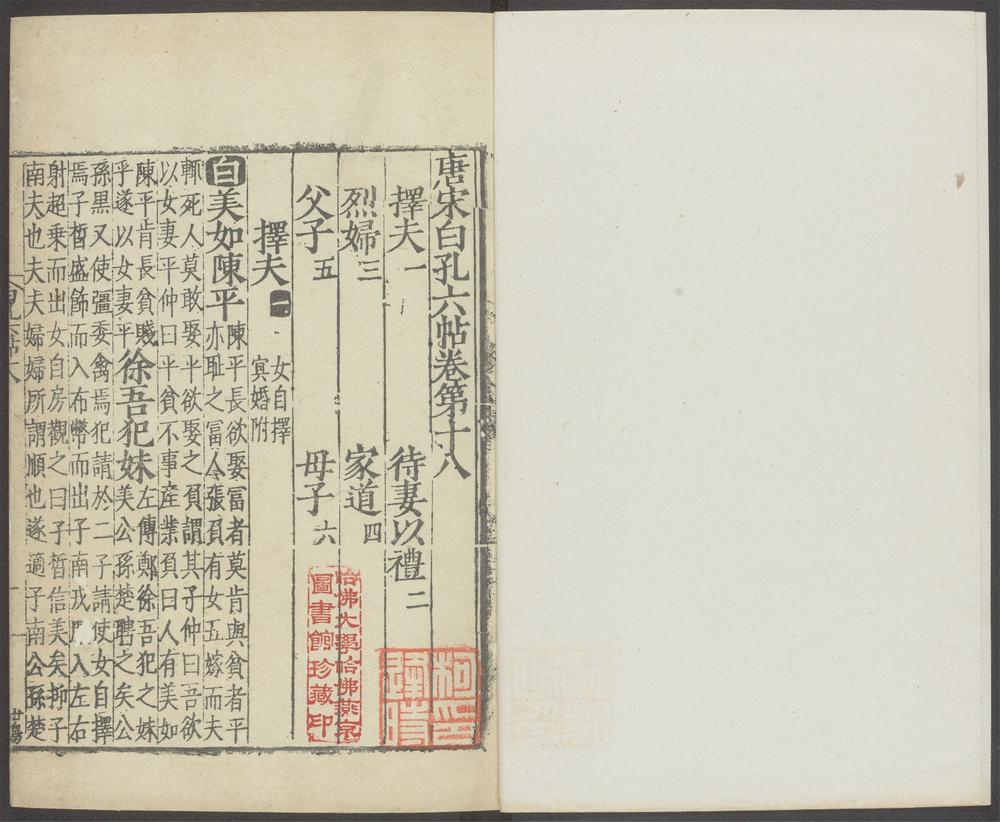 唐宋白孔六帖卷第十八
擇夫一 待妻以禮二
烈婦三 家道四
父子五 母子六
擇夫一 女自擇
冥婚附
白美如陳平 陳平長欲娶冨者莫肯與貧者平
亦耻之冨人張負有女五嫁而夫
輒死人莫敢娶平欲娶之負謂其子仲曰吾欲
以女妻平仲曰平貧不事産業負曰人有美如
陳平肯長貧賤
乎遂以女妻平
徐吾犯妹 左傳鄭徐吾犯之妹
美公孫楚聘之矣公
孫黑又使彊委禽焉犯請於二子請使女自擇
焉子晳盛飾而入布幣而出子南戎服入左右
射超乗而出女自房觀之曰子晳信美矣抑子
南夫也夫夫婦婦所謂順也遂適子南公孫楚
哈佛大學哈佛燕京
圖書館珍藏印